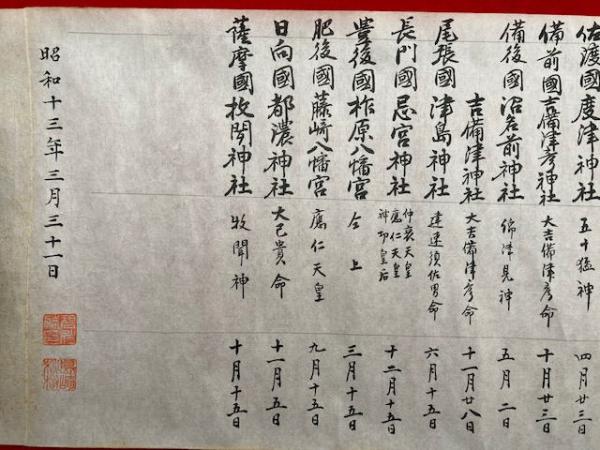 佐渡國度津神社 五十猛神 四月廿三日
備前國吉備津彦神社 大吉備津彦命 十月廿三日
備後國沼名前神社 綿津見神 五月二日
吉備津神社 大吉備津彦命 十一月廿八日
尾張國津島神社 建速須佐男命 六月十五日
長門國忌宮神社 仲哀天皇 應仁天皇 神功皇后 十二月十五日
豊後國柞原八幡宮 仝上 三月十五日
肥後國藤崎八幡宮 應仁天皇 九月十五日
日向國都濃神社 大己貴命 十一月五日
薩摩國枚聞神社 枚聞神 十月十五日
昭和十三年三月三十一日